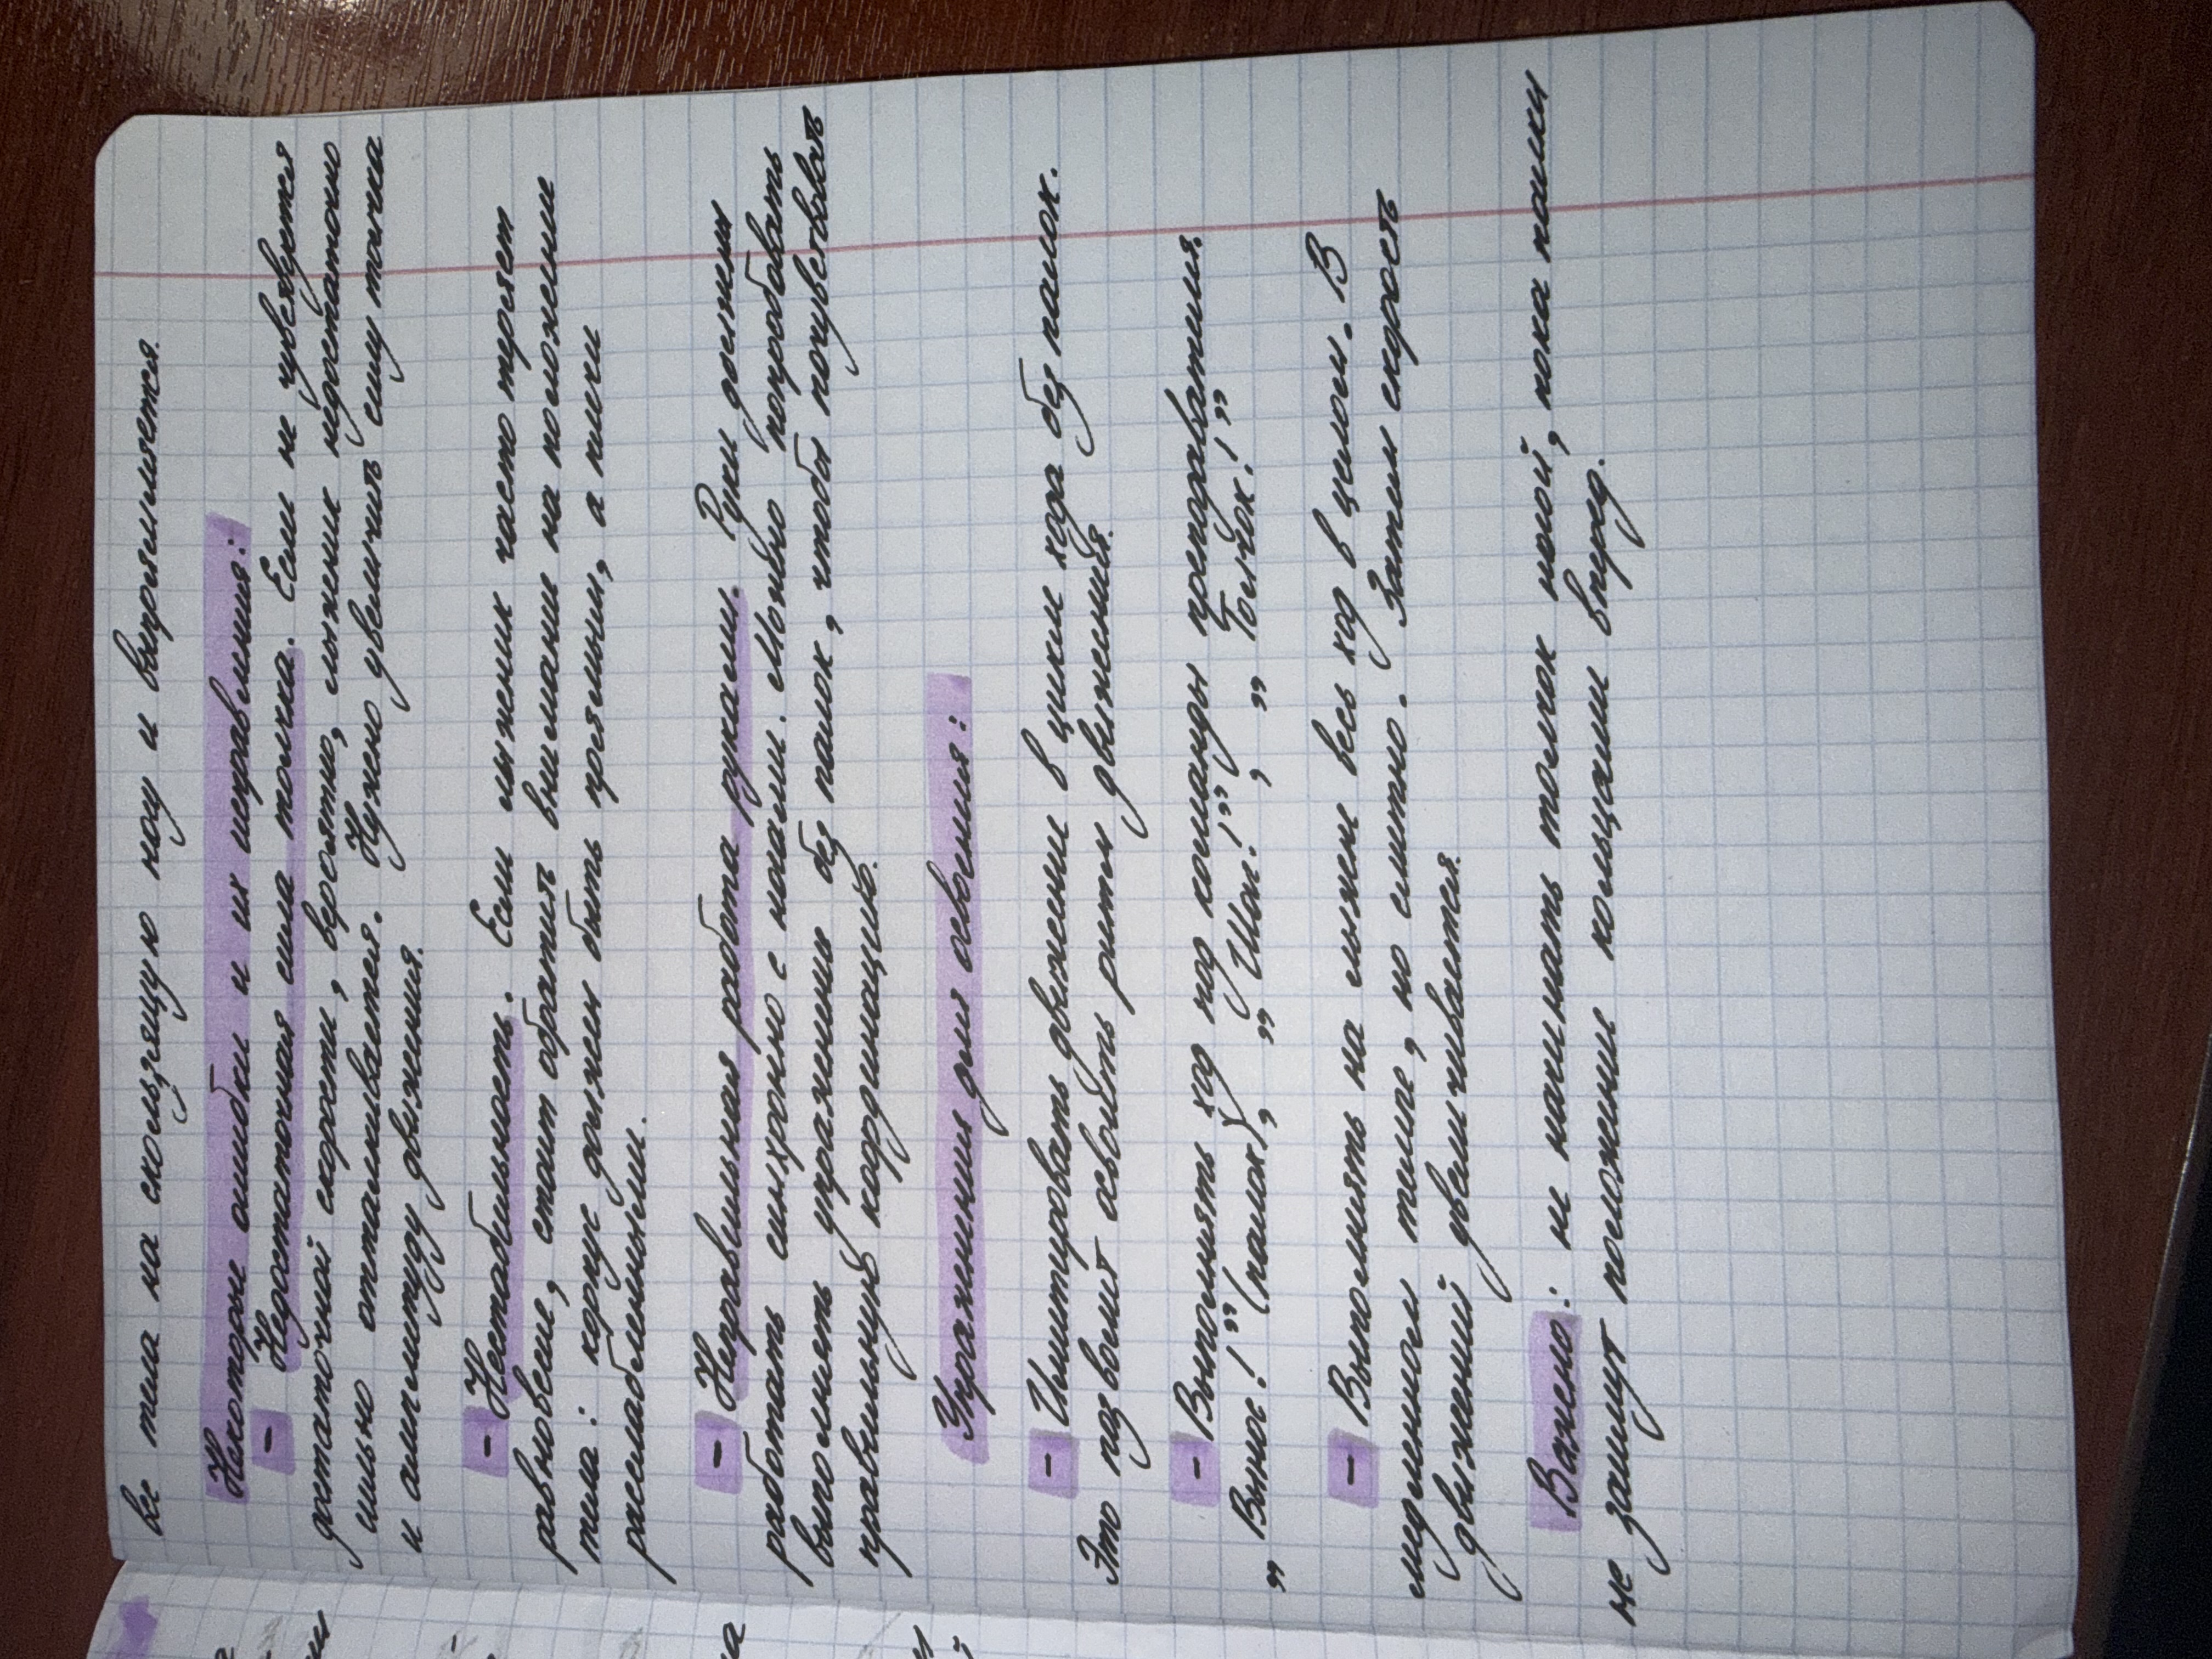 вес тела на скользящую ногу и выпрямляется.
Некоторые ошибки и их исправления:
- Недостаточная сила толчка. Если не чувствуется
достаточной скорости, вероятно, лыжник недостаточно
сильно отталкивается. Нужно увеличить силу толчка
и амплитуду движения.
- Нестабильность. Если лыжник часто теряет
равновесие, стоит обратить внимание на положение
тела: корпус должен быть прямым, а плечи
расслабленными.
- Неправильная работа руками. Руки должны
работать синхронно с ногами. Можно попробовать
выполнять упражнение без палок, чтобы почувствовать
правильную координацию.
Упражнения для освоения:
- Имитировать движение в цикле хода без палок.
Это позволит освоить ритм движения.
- Выполнять ход под команды преподавателя.
„Вынос!” (палок), „Шаг!”, „Толчок!”
- Выполнять на лыжне весь ход в целом. В
медленном темпе, но слитно. Затем скорость
движений увеличивается.
Важно: не начинать толчок ногой, пока палки
не займут положение кольцами вперед.